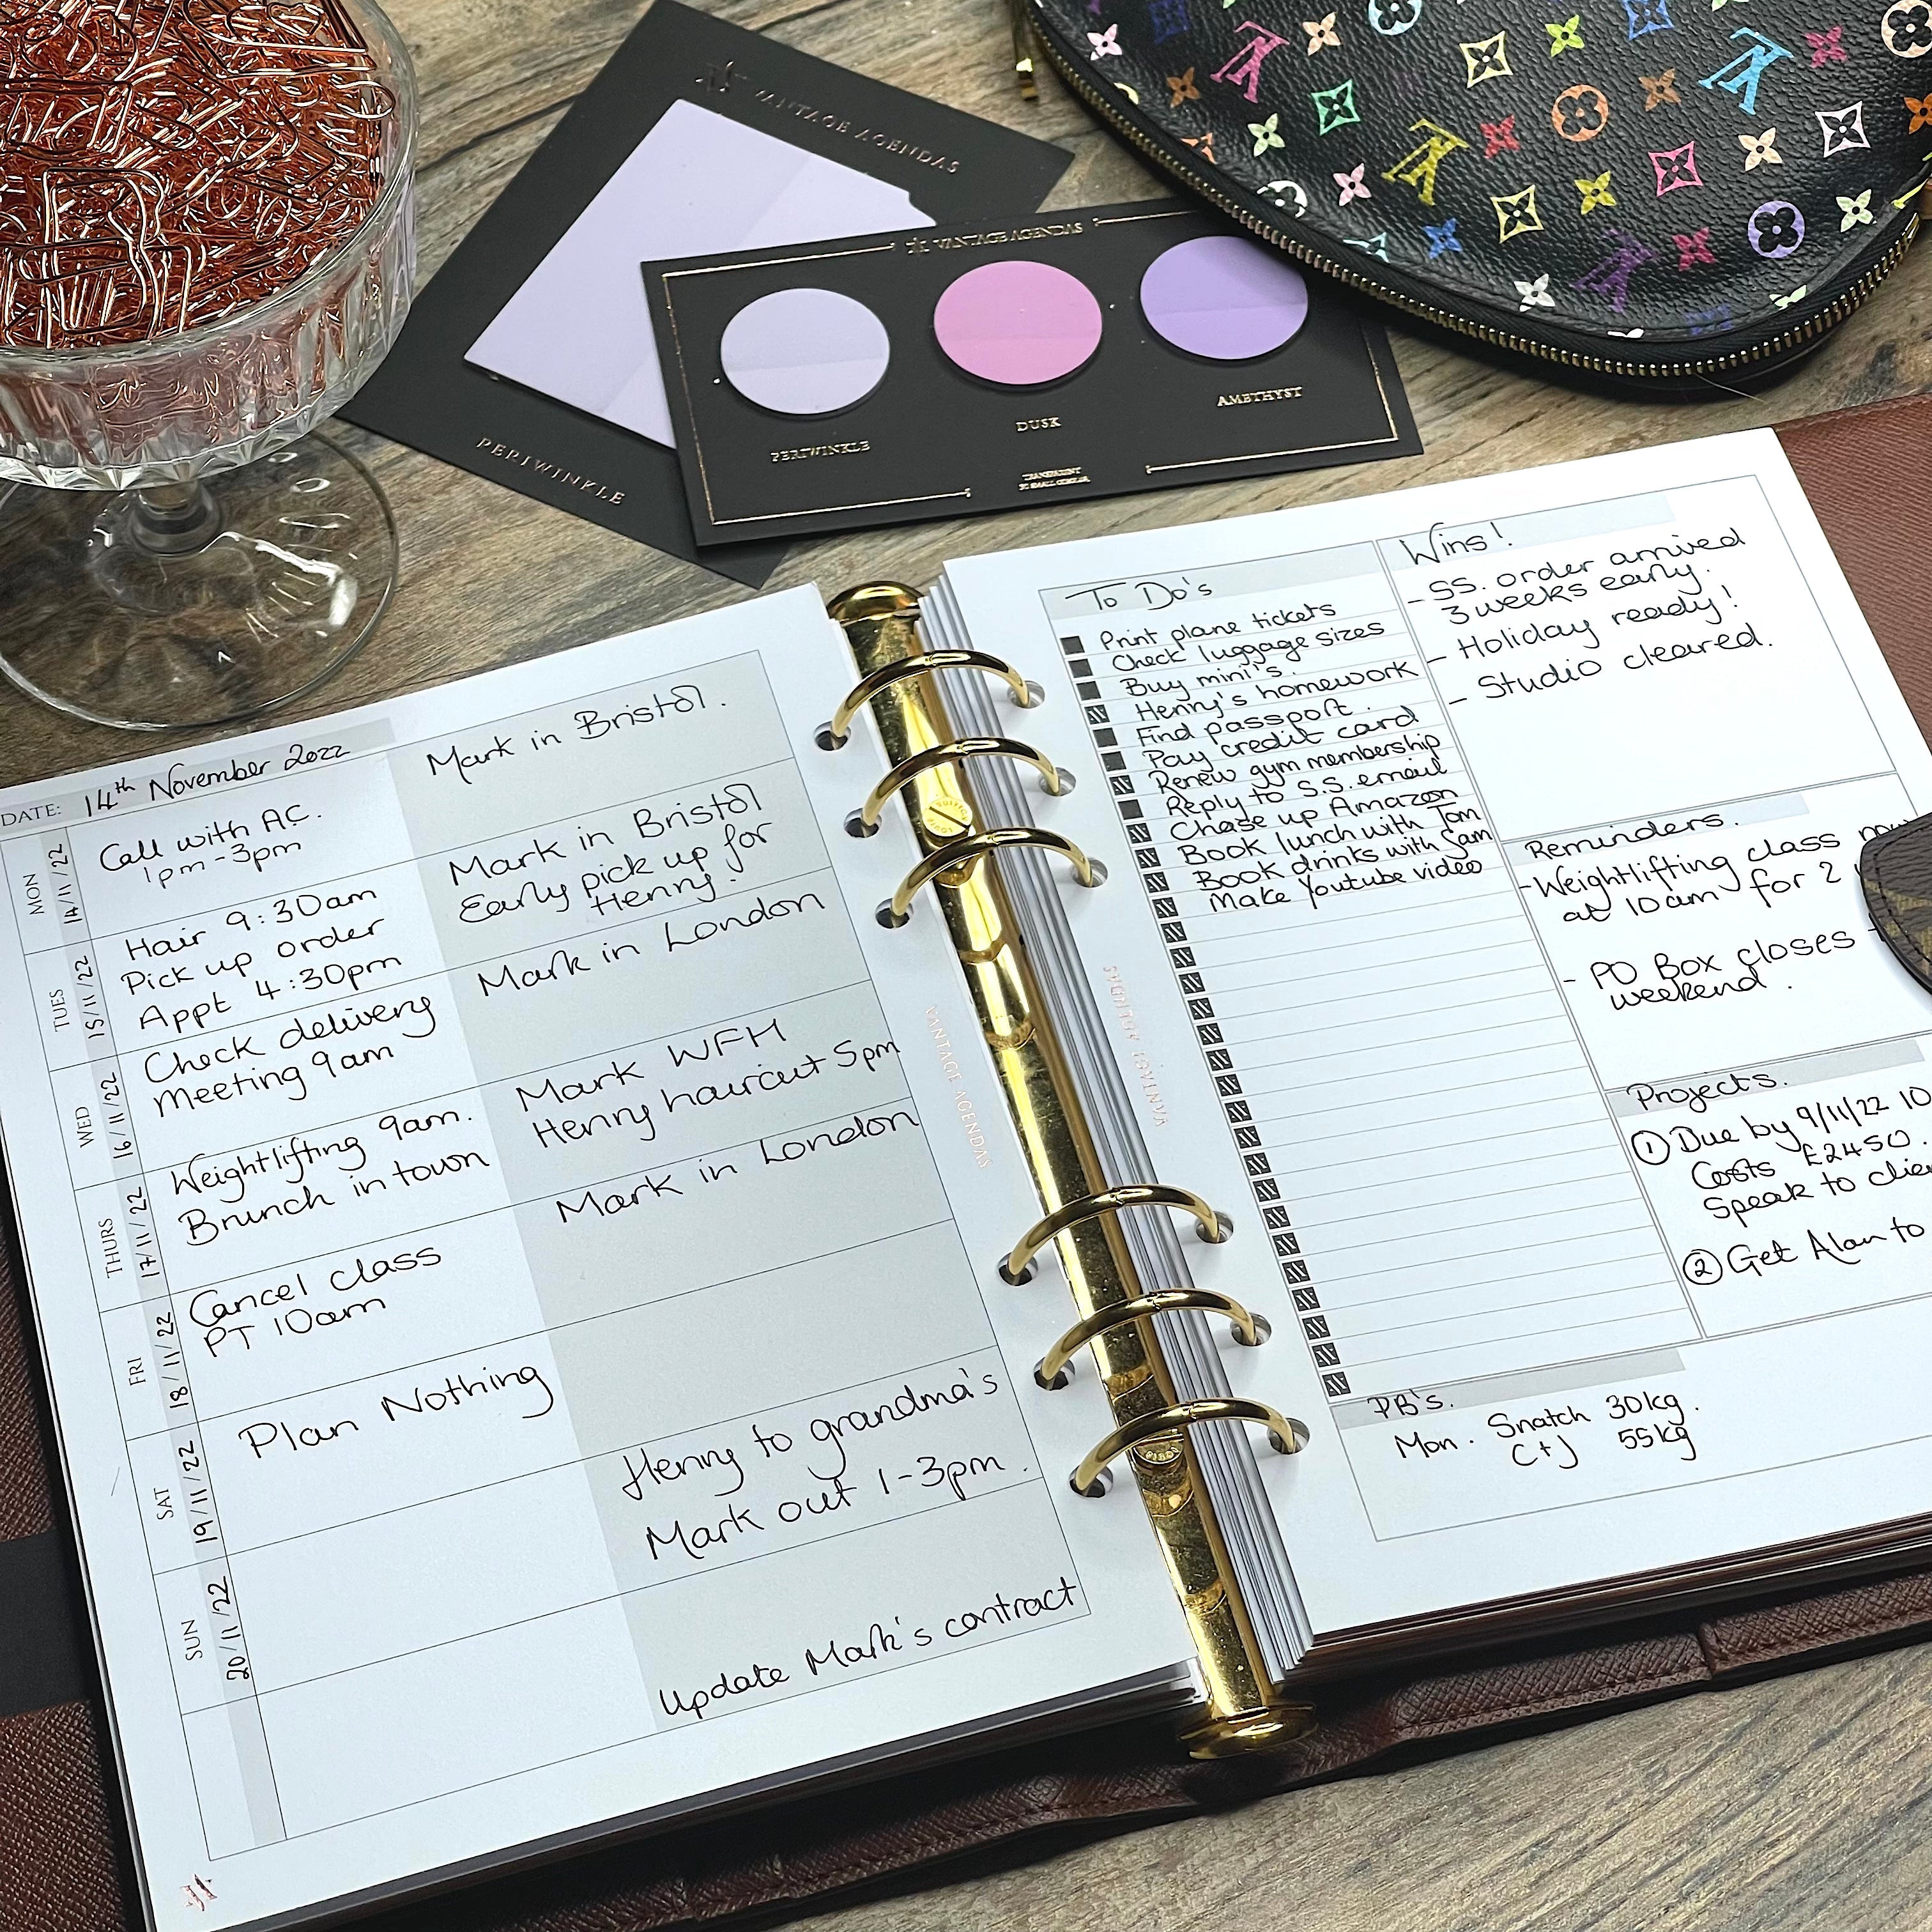 VANTAGE AGENDAS
PERIWINKLE
VANTAGE AGENDAS
PERIWINKLE
DUSK
AMETHYST
TRANSPARENT
DATE: 14th November 2022
MON
14/11/22
Call with AC.
1pm-3pm
Mark in Bristol.
TUES
15/11/22
Hair 9:30am
Pick up order
Appt 4:30pm
Mark in Bristol
Early pick up for
Henry.
WED
16/11/22
Check delivery
Meeting 9am
Mark in London
THURS
17/11/22
Weightlifting 9am.
Brunch in town
Mark WFH
Henry haircut 5pm
FRI
18/11/22
Cancel class
PT 10am
Mark in London
SAT
19/11/22
Plan Nothing
SUN
20/11/22
Henry to grandma's
Mark out 1-3pm.
Update Mark's contract
VANTAGE AGENDAS
VANTAGE AGENDAS
To Do's
Print plane tickets
Check luggage sizes
Buy mini's.
Henry's homework
Find passport.
Pay credit card
Renew gym membership
Reply to S.S. email
Chase up Amazon
Book lunch with Tom
Book drinks with Sam
Make Youtube video
Wins!
- SS. order arrived
3 weeks early.
- Holiday ready!
- Studio cleared.
Reminders.
- Weightlifting class now
at 10am for 2
- PO Box closes
weekend.
Projects.
① Due by 9/11/22 10
Costs £2450.
Speak to
② Get Alan to
PB's.
Mon. Snatch 30kg.
C+J 55kg